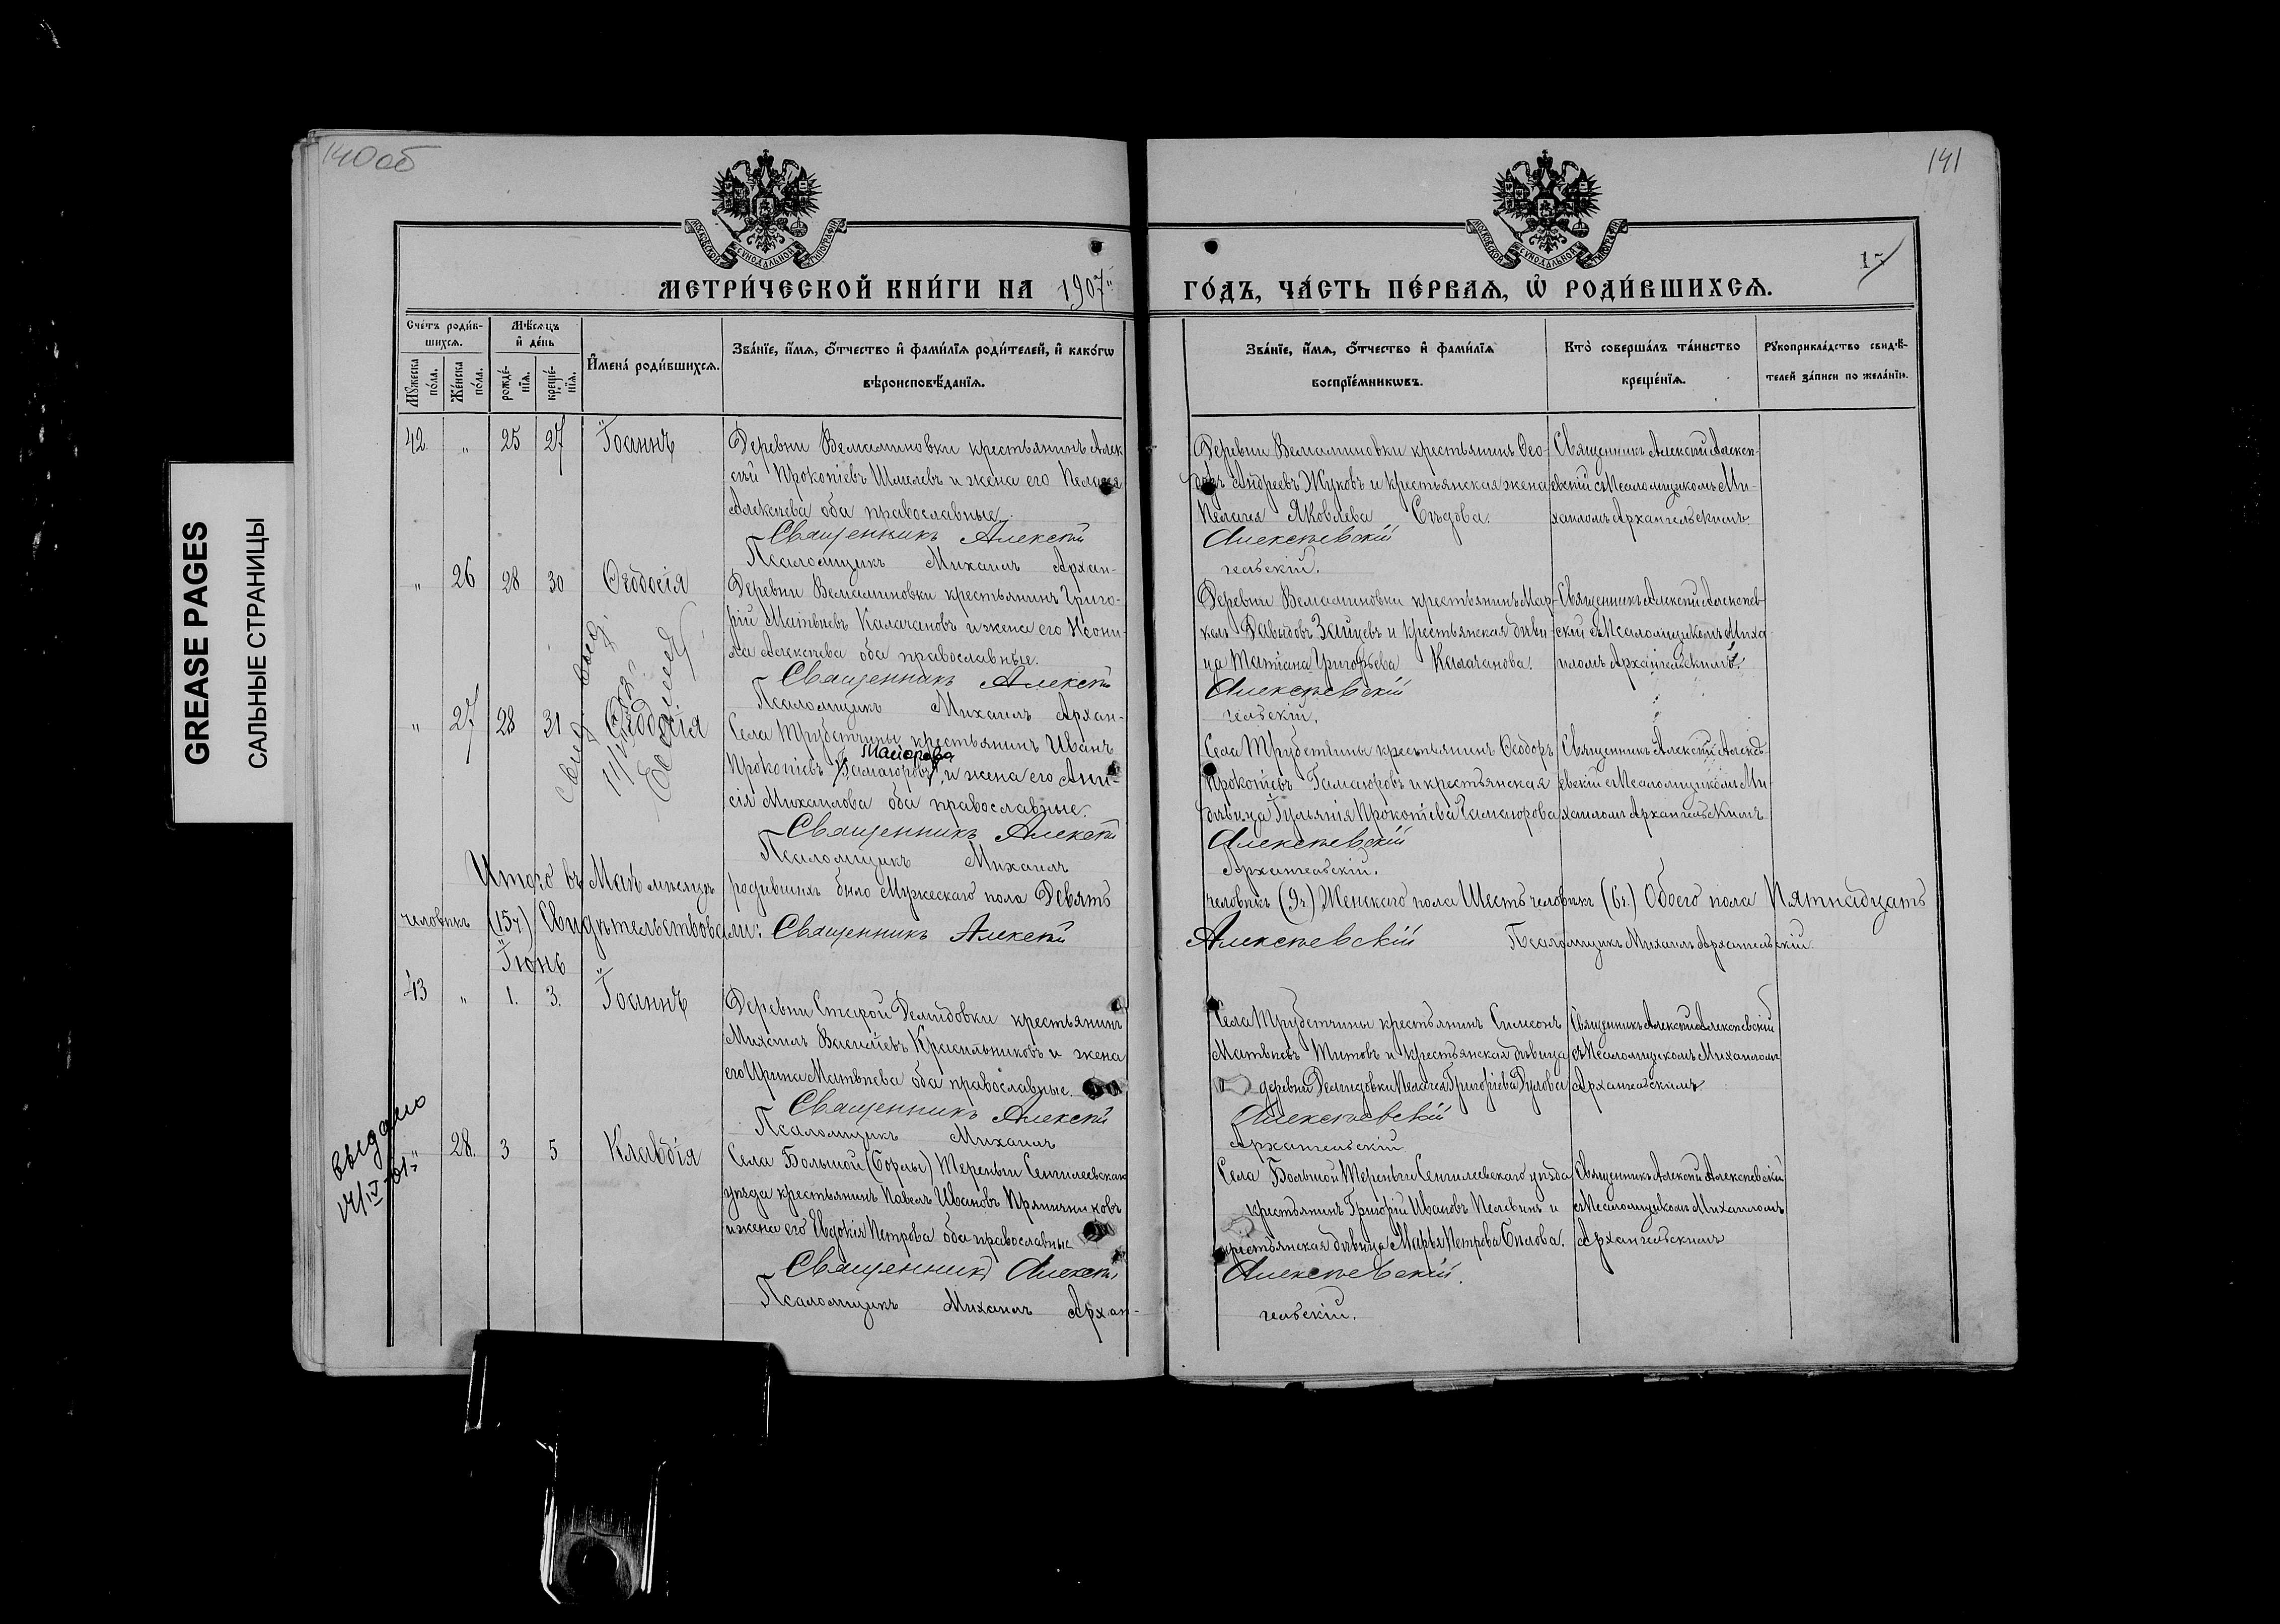 140 об
141
МОСКОВСКОЙ СУНОДАЛЬНОЙ ТИПОГРАФІИ
МОСКОВСКОЙ СУНОДАЛЬНОЙ ТИПОГРАФІИ
17
МЕТРИ́ЧЕСКОЙ КНИ́ГИ НА 1907
ГО́ДЪ, ЧА́СТЬ ПЕ́РВАЯ, Ѡ РОДИ́ВШИХСЯ.
GREASE PAGES
САЛЬНЫЕ СТРАНИЦЫ
Сче́тъ роди́в-
шихся.
Му́жеска по́ла.
Же́нска по́ла.
Мѣ́сяцъ
и҆ де́нь
рожде́-
нїя.
креще́-
нїя.
И҆мена̀ роди́вшихся.
Зва́нїе, и҆́мя, ѻ҆́тчество и҆ фами́лїя роди́телей, и҆ како́гѡ
вѣроисповѣ́данїя.
Зва́нїе, и҆́мя, ѻ҆́тчество и҆ фами́лїя
воспрїе́мникѡвъ.
Кто̀ соверша́лъ та́инство
креще́нїя.
Рукоприкла́дство свидѣ́-
телей за́писи по жела́нїю.
42 " 25 27 Іоаннъ
Деревни Вельяминовки крестьянинъ Алек
сѣй Прокопіевъ Шмелевъ и жена его Пелагея
Алексѣева оба православные.
Священникъ Алексѣй
Псаломщикъ Михаилъ Архан-
Деревни Вельяминовки крестьянинъ Ѳео-
доръ Андреевъ Жуковъ и крестьянская жена
Пелагея Яковлева Сѣдова.
Алексѣевскій
гельскій.
Священникъ Алексѣй Алексѣ-
евскій съ Псаломщикомъ Ми-
хаиломъ Архангельскимъ
" 26 28 30 Ѳеодосія
Деревни Вельяминовки крестьянинъ Григо-
рій Матвѣевъ Калачановъ и жена его Неони-
ла Алексѣева оба православные.
Священникъ Алексѣй
Псаломщикъ Михаилъ Архан-
Деревни Вельяминовки крестьянинъ Мар-
келъ Давыдовъ Зайцевъ и крестьянская дѣви
ца Татіана Григорьева Калачанова.
Алексѣевскій
гельскій.
Священникъ Алексѣй Алексѣев-
скій съ Псаломщикомъ Миха-
иломъ Архангельскимъ.
" 27 28 31 Ѳеодосія
Села Трубетчины крестьянинъ Иванъ
Майорова
Прокопіевъ Гамаюровъ и жена его Ани-
сія Михаилова оба православные.
Священникъ Алексѣй
Псаломщикъ Михаилъ
Села Трубетчины крестьянинъ Ѳеодоръ
Прокопіевъ Гамаюровъ и крестьянская
дѣвица Іульянія Прокопіева Гамаюрова
Алексѣевскій
Архангельскій.
Священникъ Алексѣй Алексѣ-
евскій съ Псаломщикомъ Ми-
хаиломъ Архангельскимъ
Итого въ Маѣ мѣсяцѣ родившихъ было Мужескаго пола Девять
человѣкъ (9ч.) Женскаго пола Шесть человѣкъ (6ч.) Обоего пола Пятнадцать
человѣкъ (15ч) Свидѣтельствовали: Священникъ Алексѣй
Алексѣевскій Псаломщикъ Михаилъ Архангельскій
Іюнь
43 " 1. 3. Іоаннъ
Деревни Старой Демидовки крестьянинъ
Михаилъ Васильевъ Красильниковъ и жена
его Ирина Матвѣева оба православные.
Священникъ Алексѣй
Псаломщикъ Михаилъ
Села Трубетчины крестьянинъ Симеонъ
Матвѣевъ Титовъ и крестьянская дѣвица
деревни Демидовки Пелагея Григорьева Дулова
Алексѣевскій
Архангельскій
Священникъ Алексѣй Алексѣевскій
съ Псаломщикомъ Михаиломъ
Архангельскимъ
выдано
" 28. 3 5 Клавдія
Села Большой (Борлы) Тереньги Сенгилеевскаго
уѣзда крестьянинъ Павелъ Ивановъ Пряничниковъ
и жена его Евдокія Петрова оба православные
Священникъ Алексѣй
Псаломщикъ Михаилъ Архан-
Села Большой Тереньги Сенгилеевскаго уѣзда
крестьянинъ Григорій Ивановъ Пелевинъ и
крестьянская дѣвица Марья Петрова Бѣлова.
Алексѣевскій.
гельскій.
Священникъ Алексѣй Алексѣевскій
съ Псаломщикомъ Михаиломъ
Архангельскимъ